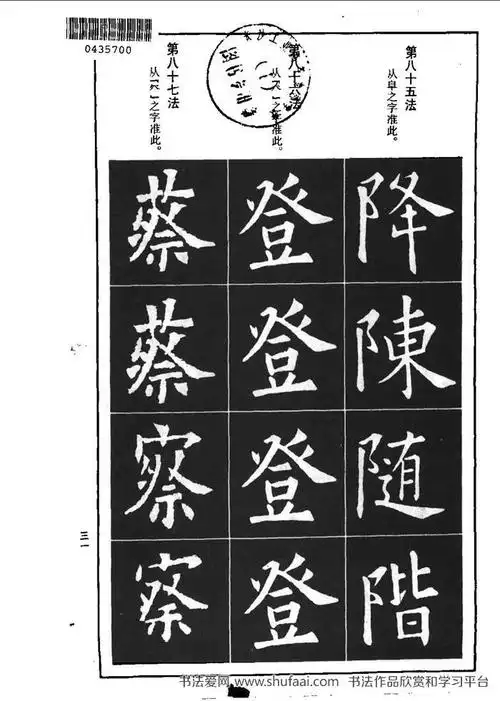 0435700
第八十五法
从阜之字准此。
降
陳
随
階
第八十六法
从「癶」之字准此。
登
登
登
登
第八十七法
之字准此。
蔡
蔡
察
察
三一
书法爱网.www.shufaai.com 书法作品欣赏和学习平台